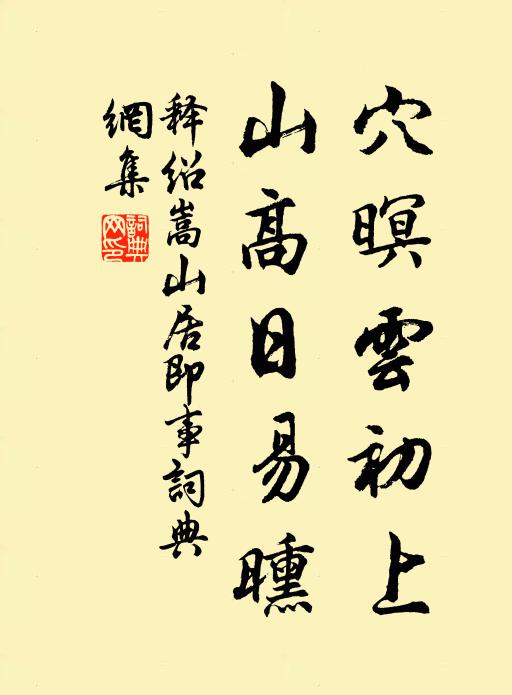 穴暝雲初上
山高日易曛
释绍嵩山居即事詞典
網集
詞典
网印